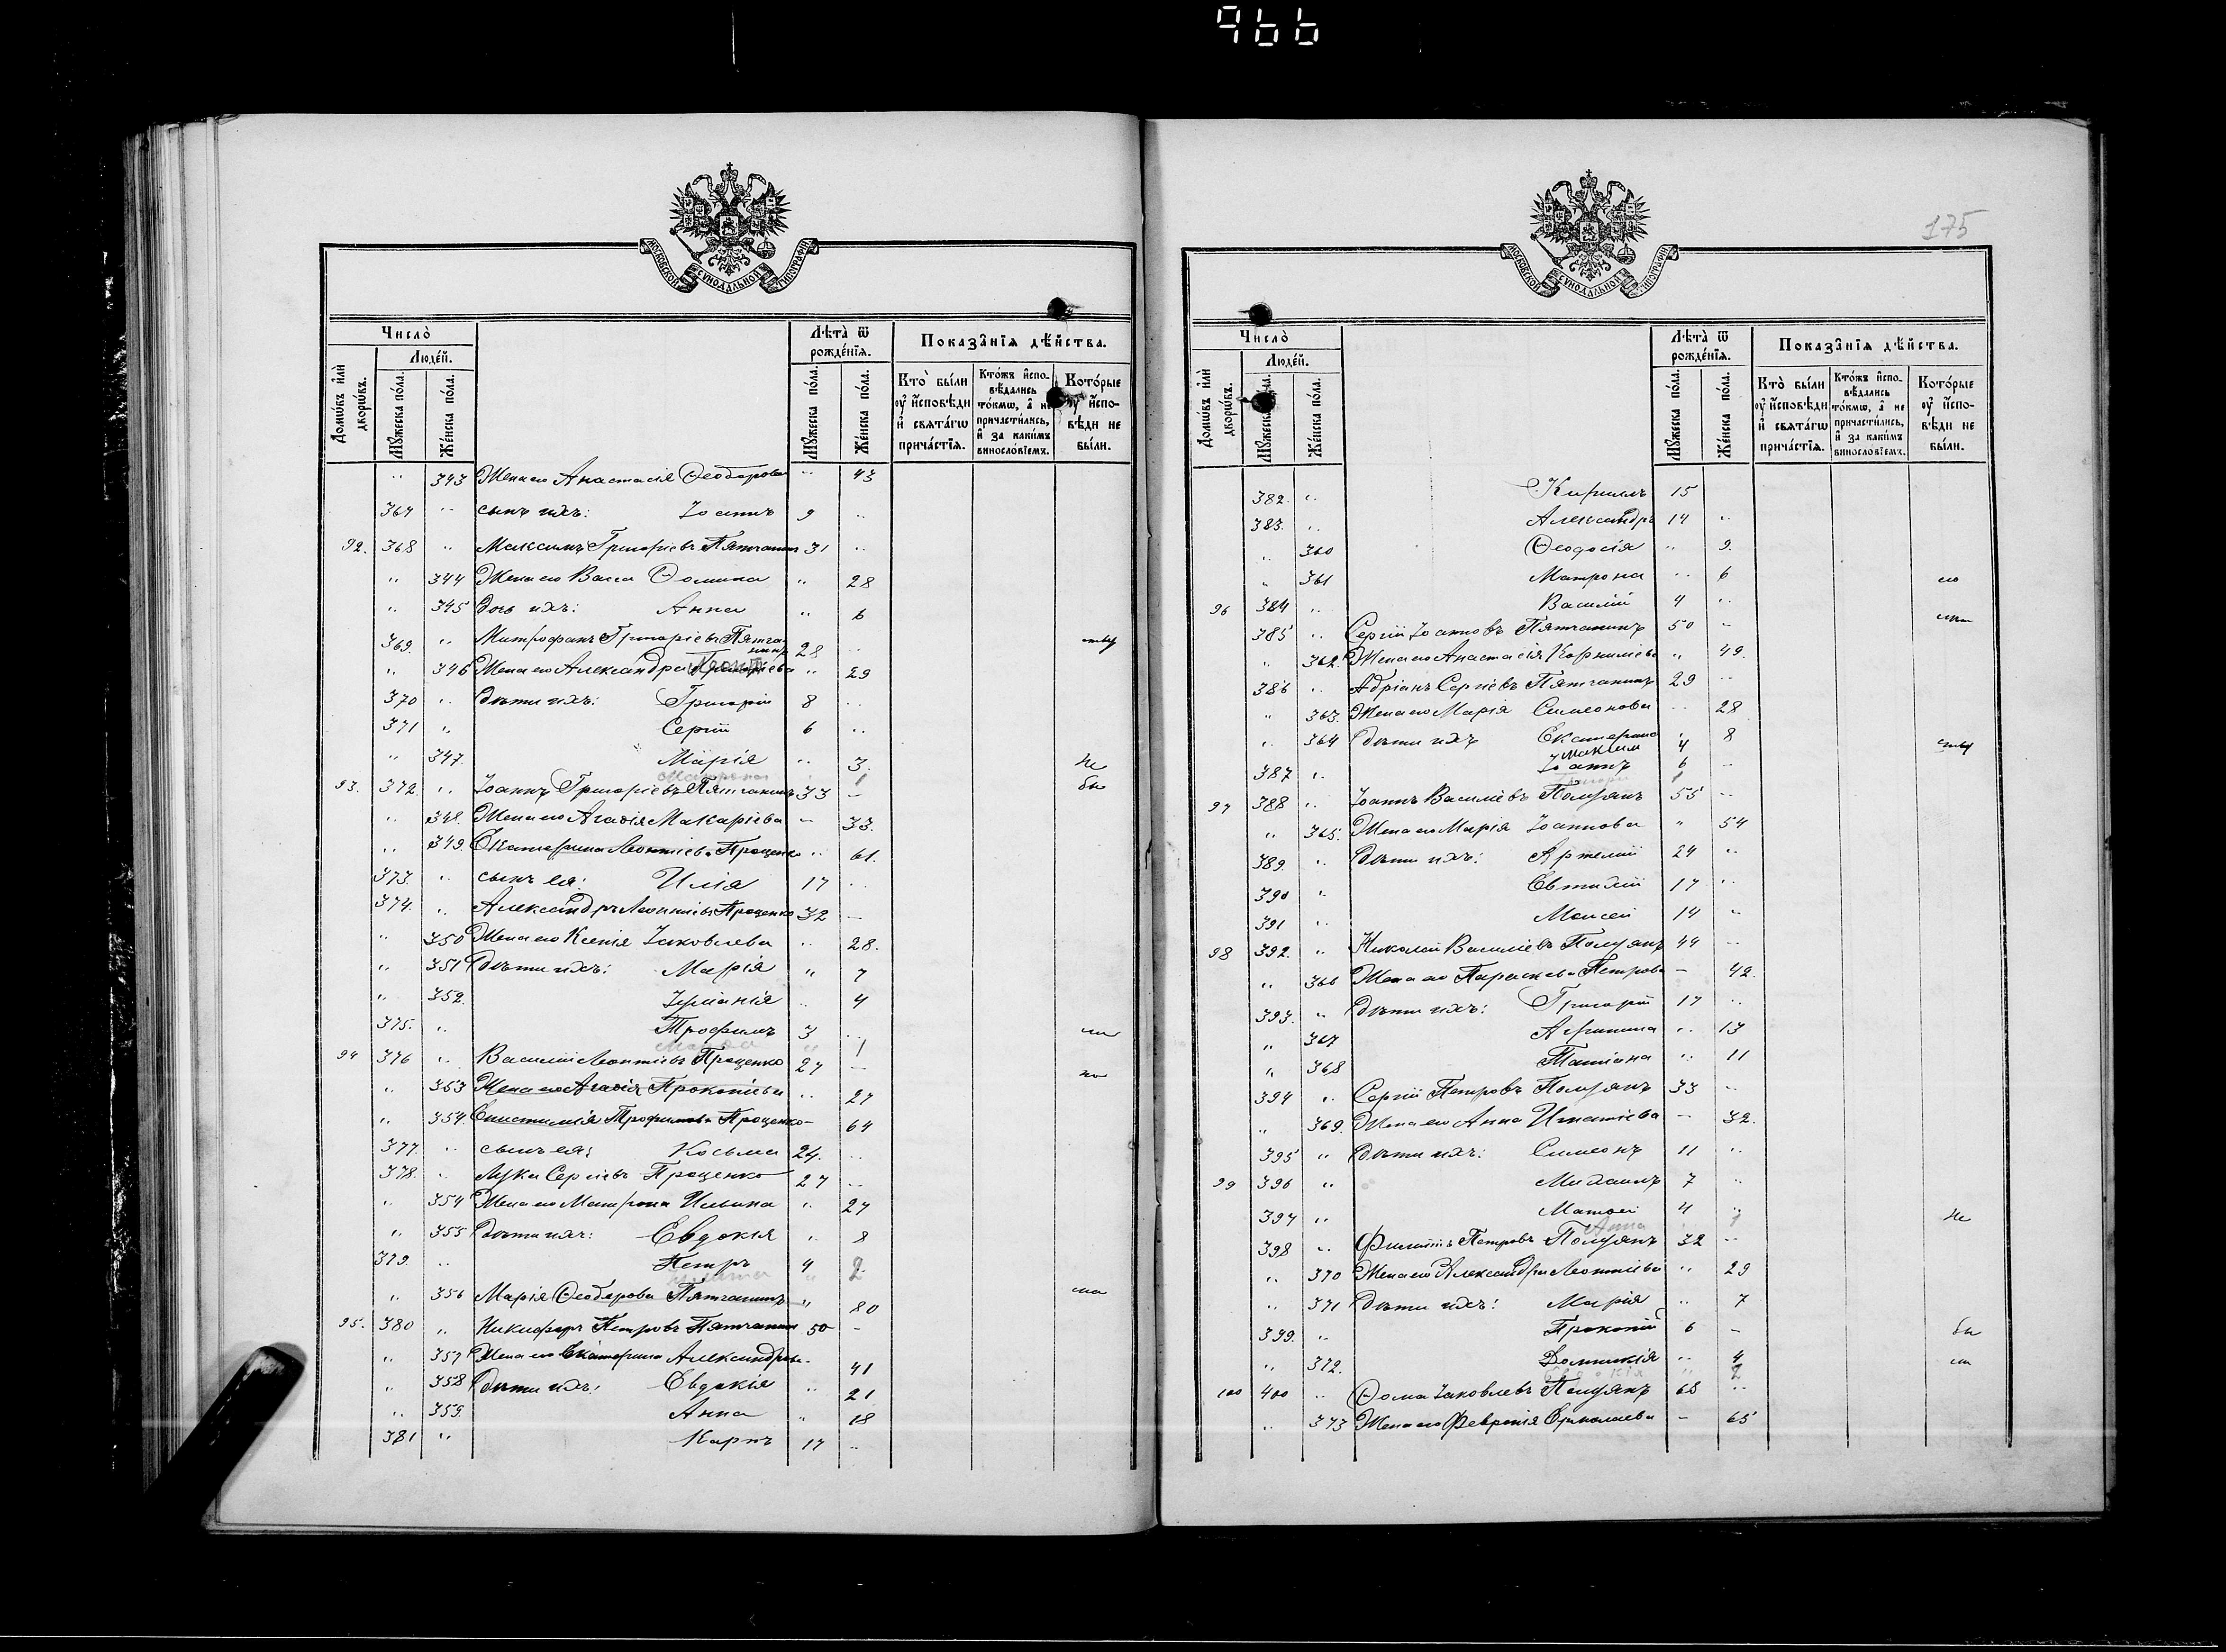 966
МОСКОВСКОЙ СѴНОДАЛЬНОЙ ТИПОГРАФІИ
Число̀
Людéй.
Домѡ́въ и҆лѝ дворѡ́въ.
Мꙋ́жеска по́ла.
Же́нска по́ла.
Лѣ́та ѿ рожде́нїѧ.
Мꙋ́жеска по́ла.
Же́нска по́ла.
Показа̑нїѧ дѣ́йства.
Кто̀ бы́ли ѹ҆ и҆́сповѣди и҆ свѧта́гѡ прича́стїѧ.
Кто́жъ и҆спо-вѣ́дались то́кмѡ, а҆ не причасти́лись, и҆ за каки́мъ винослові́емъ.
Кото́рые ѹ҆ и҆́спо-вѣди не бы́ли.
„ 343 Жена его Анастасія Ѳеодорова „ 43
364 „ сынъ ихъ: Іоаннъ 9 „
92. 368 „ Максимъ Григоріевъ Пятчанинъ 31 „
„ 344 Жена его Васса Ѳомина „ 28
„ 345 Дочь ихъ: Анна „ 6
369. „ Митрофанъ Григоріевъ Пятчанинъ 28 „
„ 346 Жена его Александра „ 29
370 „ Дѣти ихъ: Григорій 8 „
371 „ Сергій 6 „
„ 347. Марія „ 3. Не
Матрона 1
93. 372. „ Іоаннъ Григоріевъ Пятчанинъ 33 – бы
„ 348. Жена его Агаѳія Макаріева – 33.
„ 349. Екатерина Леонтіева Проценко „ 61.
373. „ сынъ ея: Илія 17 „
374. „ Александръ Леонтіевъ Проценко 32 –
„ 350 Жена его Ксенія Іаковлева „ 28.
„ 351 Дѣти ихъ: Марія „ 7
„ 352. Іуліанія „ 4
375. „ Трофимъ 3 „ ли
1
94 376 „ Василій Леонтіевъ Проценко 27 – по
„ 353 Жена его Агаѳія Прокопіева „ 27
„ 354. Епистимія Трофимова Проценко – 64
377. „ сынъ ея: Косьма 24. „
378. „ Лука Сергіевъ Проценко 27 „
„ 354 Жена его Матрона Ильина „ 27
„ 355 Дѣти ихъ: Евдокія „ 8
379. „ Петръ 4 „
2
„ 356 Марія Ѳеодорова Пятчанинъ „ 80 ма
95. 380 „ Никифоръ Петровъ Пятчанинъ 50 –
„ 357 Жена его Екатерина Александрова „ 41
„ 358 Дѣти ихъ: Евдокія „ 21
„ 359. Анна „ 18
381 „ Карпъ 17 „
175
МОСКОВСКОЙ СѴНОДАЛЬНОЙ ТИПОГРАФІИ
Число̀
Людéй.
Домѡ́въ и҆лѝ дворѡ́въ.
Же́нска по́ла.
Лѣ́та ѿ рожде́нїѧ.
Мꙋ́жеска по́ла.
Же́нска по́ла.
Показа̑нїѧ дѣ́йства.
Кто̀ бы́ли ѹ҆ и҆́сповѣди и҆ свѧта́гѡ прича́стїѧ.
Кто́жъ и҆спо-вѣ́дались то́кмѡ, а҆ не причасти́лись, и҆ за каки́мъ винослові́емъ.
Кото́рые ѹ҆ и҆́спо-вѣди не бы́ли.
382. „ Кириллъ 15
383. „ Александръ 14 „
„ 360 Ѳеодосія „ 9.
„ 361 Матрона „ 6
96 384 „ Василій 4 „
385 „ Сергій Іоанновъ Пятчанинъ 50 „
„ 362. Жена его Анастасія Корниліева „ 49.
386 „ Адріанъ Сергіевъ Пятчанинъ 29 „
„ 363. Жена его Марія Симеонова „ 28
„ 364 Дѣти ихъ Екатерина „ 8
Максим 4
387 „ Іоаннъ 6 –
97 388 „ Іоаннъ Василіевъ Полуянъ 55 „
„ 365. Жена его Марія Іоаннова „ 54
389. „ Дѣти ихъ: Артемій 24 „
390 „ Евтимій 17 „
391 „ Моисей 14 „
98 392. „ Николай Василіевъ Полуянъ 44 „
„ 366 Жена его Параскева Петрова – 42.
393. „ Дѣти ихъ: Григорій 17 „
„ 367 Агрипина „ 13
„ 368 Татіана „ 11
394 „ Сергій Петровъ Полуянъ 33 „
„ 369. Жена его Анна Игнатіева – 32.
395 „ Дѣти ихъ: Симеонъ 11 „
99 396 „ Михаилъ 7 „
397 „ Матѳей 4 „ Не
Анна 1
398 „ Филиппъ Петровъ Полуянъ 32 „
„ 370 Жена его Александра Леонтіева „ 29
„ 371 Дѣти ихъ: Марія „ 7
399. „ Прокопій 6 – бы
„ 372. Домникія „ 4 ли
2
100 400 „ Ѳома Іаковлевъ Полуянъ 68 „
„ 373 Жена его Февронія Ермолаева – 65